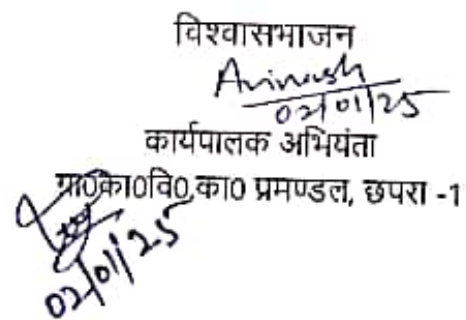 विश्वासभाजन
Avinash
02/01/25
कार्यपालक अभियंता
ग्रा०का०वि०,का० प्रमण्डल, छपरा -1
02/01/25